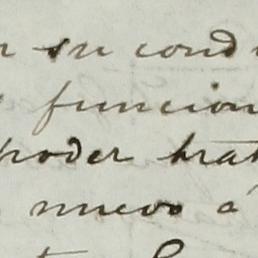 su cond
funcion
poder trat
nuevo á